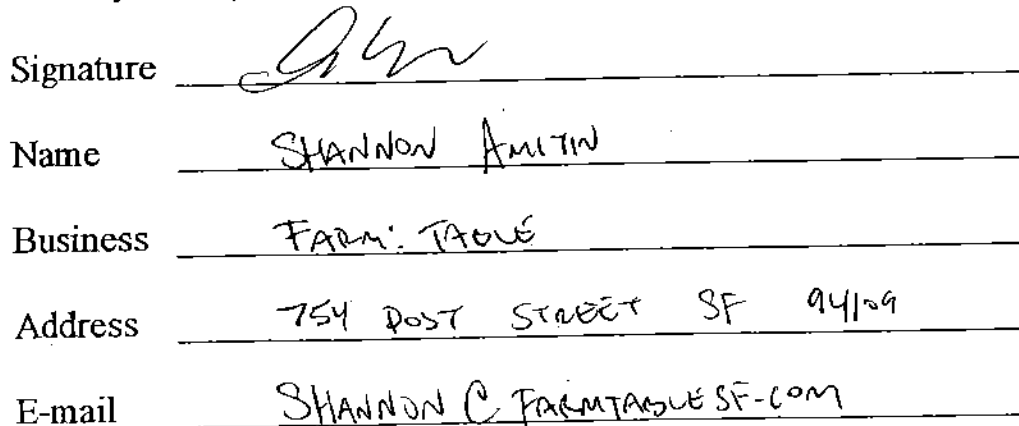 Signature
Name SHANNON AMITIN
Business FARM: TABLE
Address 754 POST STREET SF 94109
E-mail SHANNON @ FARMTABLESF.COM